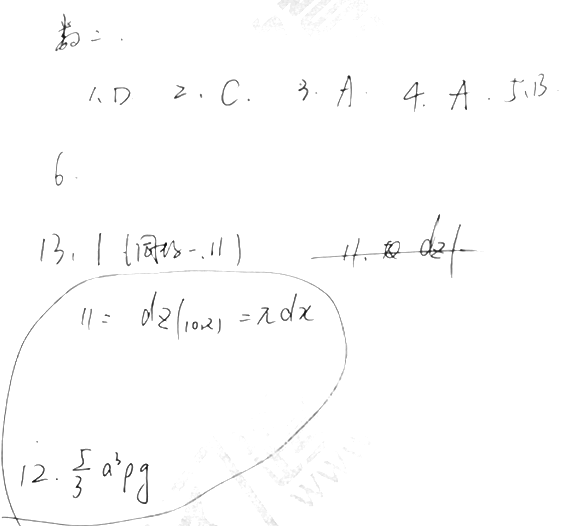 数二.
1. D 2. C. 3. A. 4. A. 5. B
6.
13. 1 (同数一.11) 11. dz|
11 = dz|(0,2) = πdx
12. 5/3 a³ρg